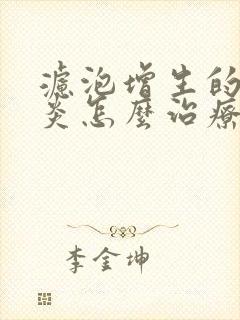 濾泡增生的
炎怎麼治療
李金坤